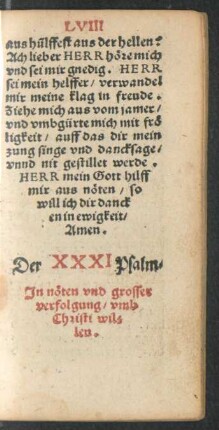 LVIII
aus hülffest aus der hellen?
Ach lieber HERR höre mich
vnd sei mir gnedig. HERR
sei mein helffer/ verwandel
mir meine klag in freude.
Ziehe mich aus vom jamer/
vnd vmbgürte mich mit frö
ligkeit/ auff das dir mein
zung singe vnd dancksage/
vnnd nit gestillet werde.
HERR mein Gott hilff
mir aus nöten/ so
will ich dir danck
en in ewigkeit/
Amen.
Der XXXI Psalm.
In nöten vnd grosser
verfolgung/ vmb
Christi wil-
len.